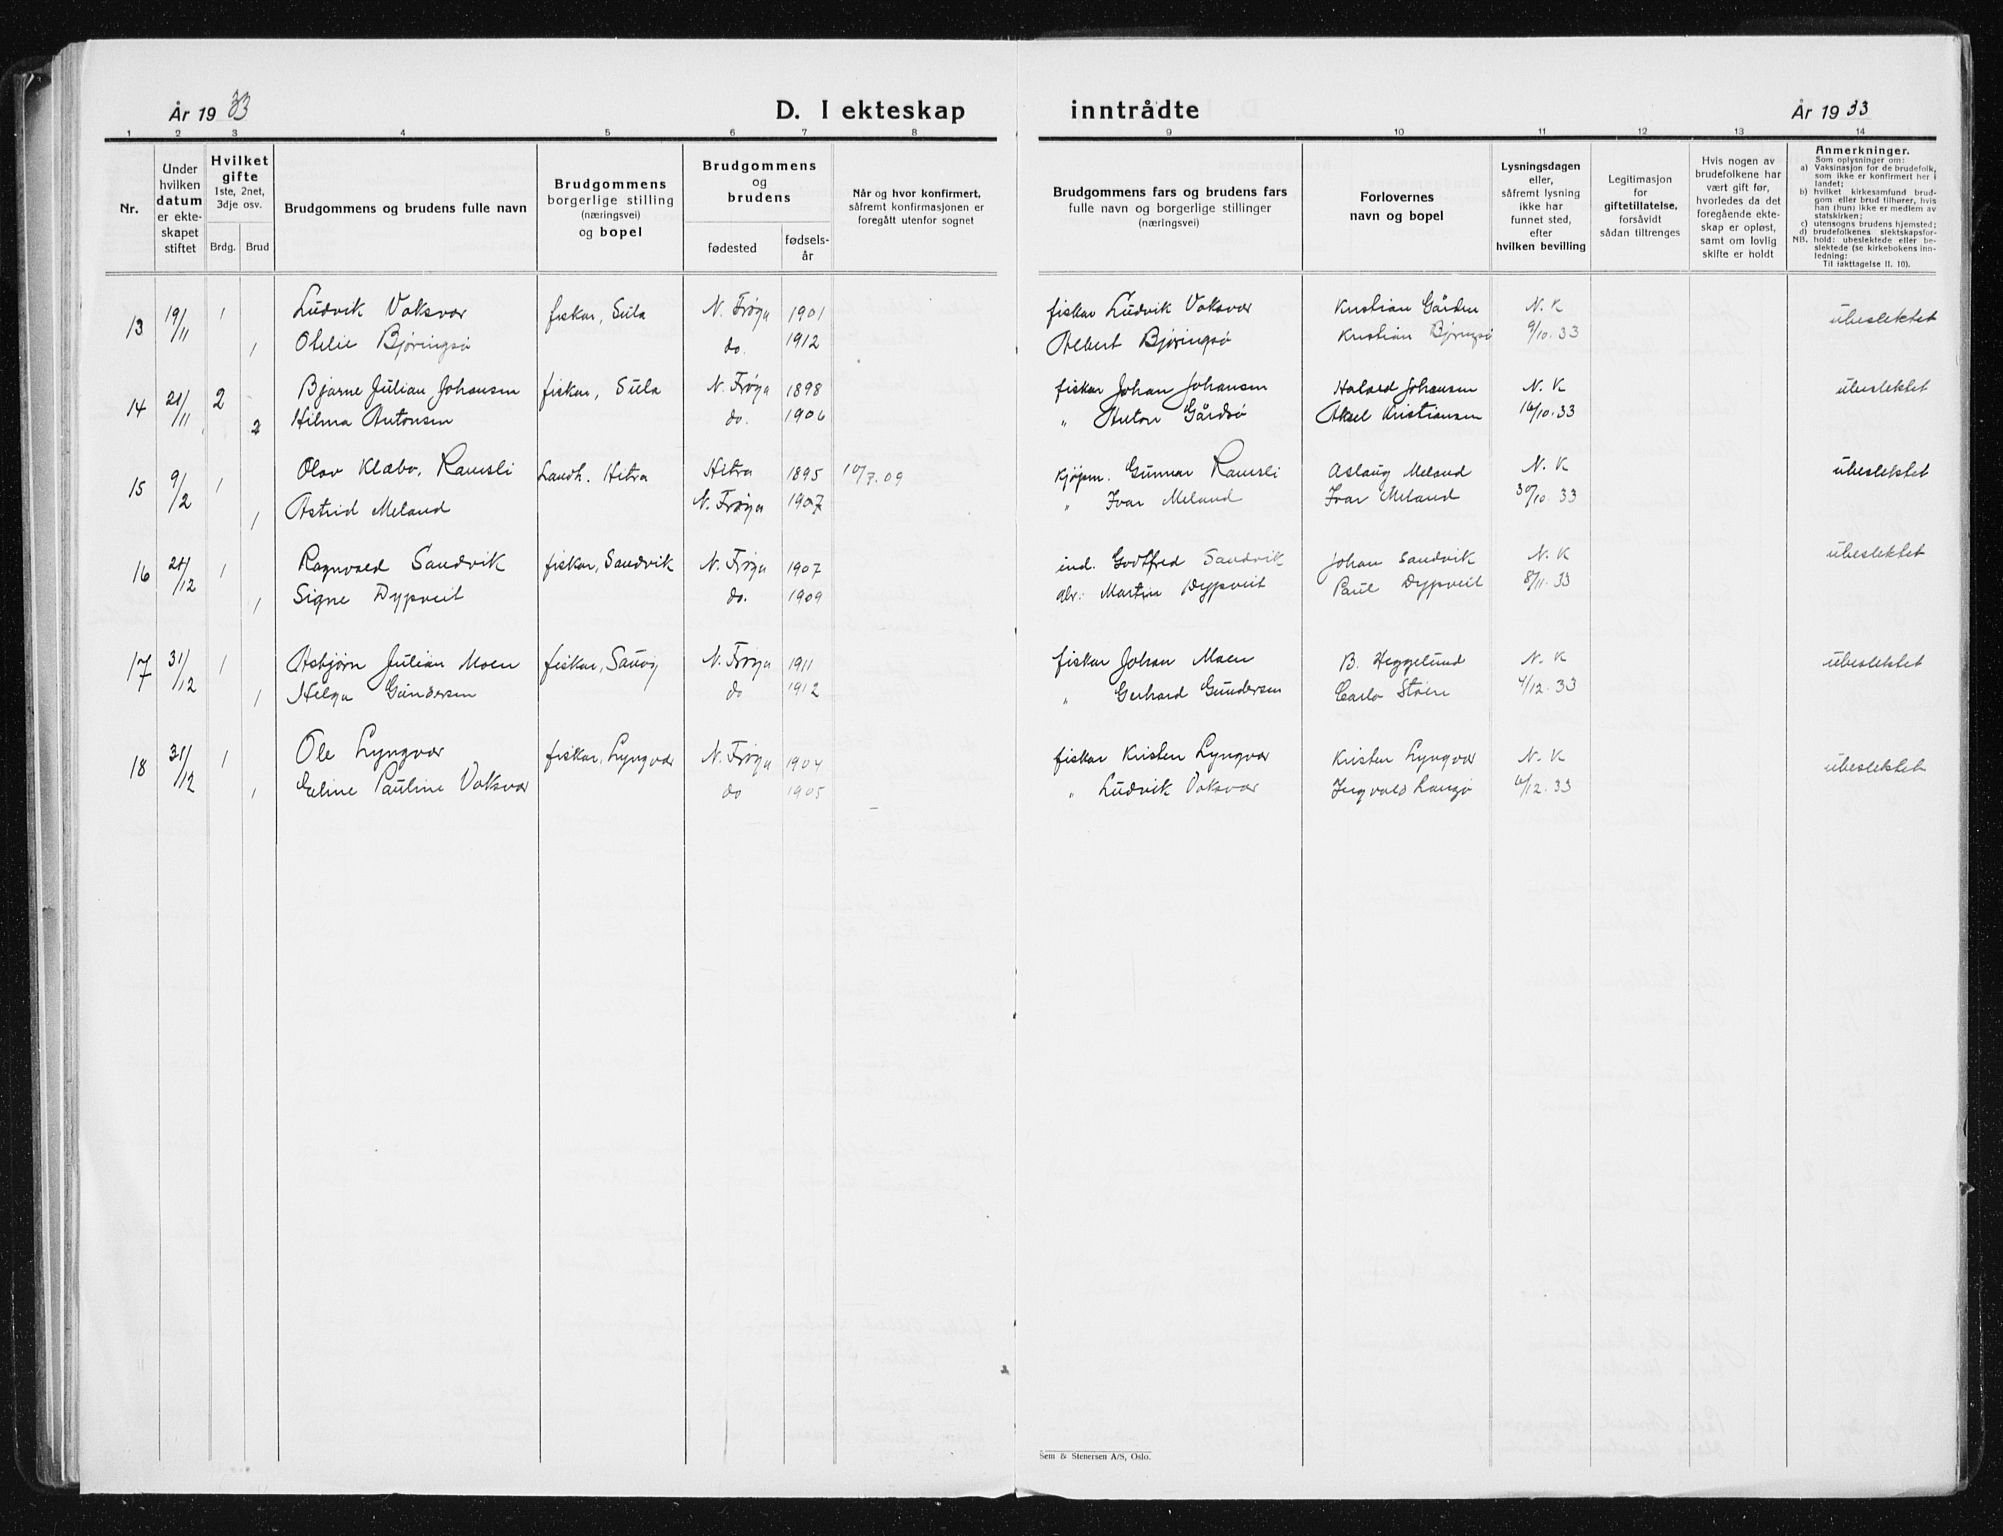 År 1933
D. I ekteskap
inntrådte
År 1933
1 2 3 4 5 6 7 8 9 10 11 12 13 14
Nr.
Under
hvilken
datum
er ekte-
skapet
stiftet
Hvilket
gifte
1ste, 2net,
3dje osv.
Brdg.
Brud
Brudgommens og brudens fulle navn
Brudgommens
borgerlige stilling
(næringsvei)
og bopel
Brudgommens
og
brudens
fødested
fødsels-
år
Når og hvor konfirmert,
såfremt konfirmasjonen er
foregått utenfor sognet
Brudgommens fars og brudens fars
fulle navn og borgerlige stillinger
(næringsvei)
Forlovernes
navn og bopel
Lysningsdagen
eller,
såfremt lysning
ikke har
funnet sted,
efter
hvilken bevilling
Legitimasjon
for
giftetillatelse,
forsåvidt
sådan tiltrenges
Hvis nogen av
brudefolkene har
vært gift før,
hvorledes da det
foregående ekte-
skap er opløst,
samt om lovlig
skifte er holdt
Anmerkninger.
Som oplysninger om:
a) Vaksinasjon for de brudefolk,
som ikke er konfirmert her i
landet;
b) hvilket kirkesamfund brud-
gom eller brud tilhører, hvis
han (hun) ikke er medlem av
statskirken;
c) utensogns brudens hjemsted;
d) brudefolkenes slektskapsfor-
NB. hold: ubeslektede eller be-
slektede (se kirkebokens inn-
ledning:
Til iakttagelse II. 10).
13 19/11 1 Ludvik Vaksvær fiskar, Sula N. Frøya 1901 fiskar Ludvik Vaksvær Kristian Gården N. K ubeslektet
1 Olelie Bjøringsø do. 1912 Albert Bjøringsø Kristian Bjøringsø 9/10. 33
14 21/11 2 Bjarne Julian Johansen fiskar, Sula N. Frøya 1898 fiskar Johan Johansen Halard Johansen N. K ubeslektet
2 Hilma Antonsen do. 1906 " Anton Gårdsø Aksel Kristiansen 16/10. 33
15 9/2 1 Olav Klæbo, Ramsli Landh. Hitra Hitra 1895 10/7. 09 kjøpm. Gunnar Ramsli Aslaug Meland N. K ubeslektet
1 Astrid Meland N. Frøya 1907 " Ivar Meland Ivar Meland 30/10. 33
16 21/12 1 Ragnvald Sandvik fiskar, Sandvik N. Frøya 1907 ind. Godtfred Sandvik Johan Sandvik N. K ubeslektet
1 Signe Dypveit do. 1909 Martin Dypveit Paul Dypveit 8/11. 33
17 31/12 1 Asbjørn Julian Moen fiskar, N. Frøya 1911 fiskar Johan Moen B. Heggelund N. K ubeslektet
1 Helga Gundersen do 1912 " Gerhard Gundersen Carlo Støen 4/12. 33
18 31/12 1 Ole Lyngvær fiskar, Lyngvær N. Frøya 1904 fiskar Kristen Lyngvær Kristen Lyngvær N. K ubeslektet
1 Eline Pauline Vaksvær do 1905 " Ludvik Vaksvær Ingvald Langø 6/12. 33
Sem & Stenersen A/S, Oslo.